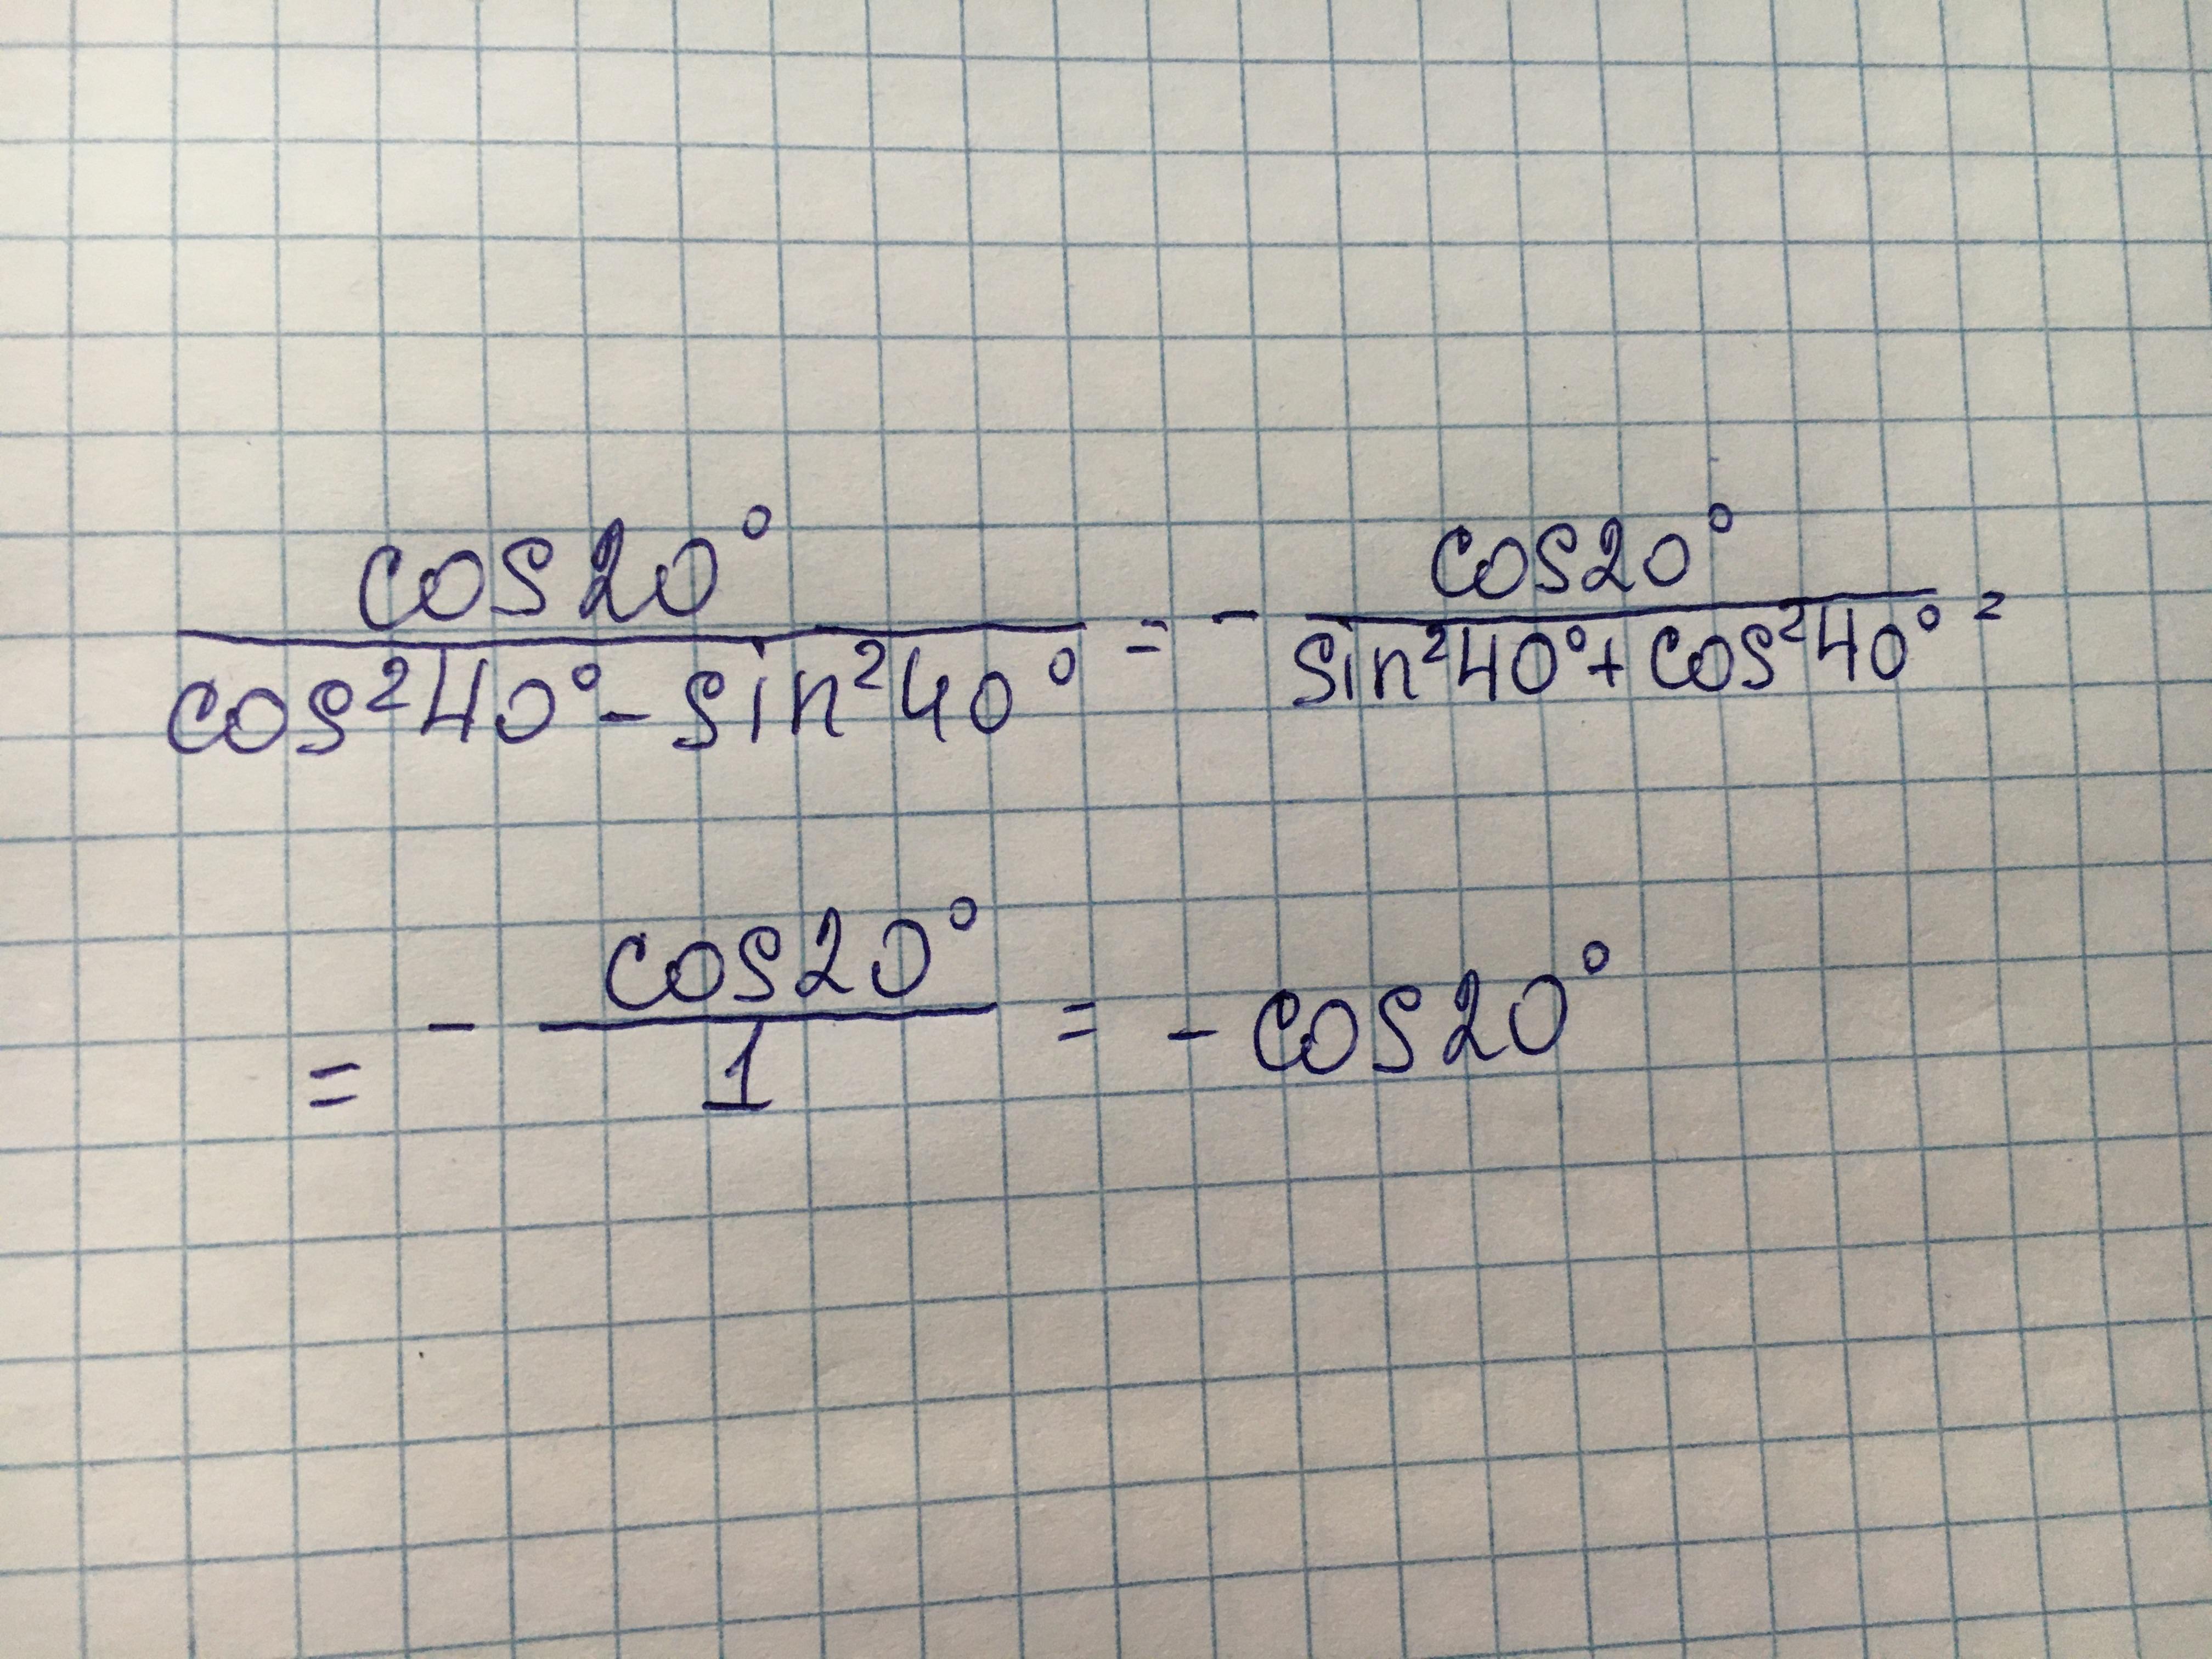 cos20°
cos²40° - sin²40° = - cos20°
sin²40° + cos²40° =
= - cos20°
1 = - cos20°